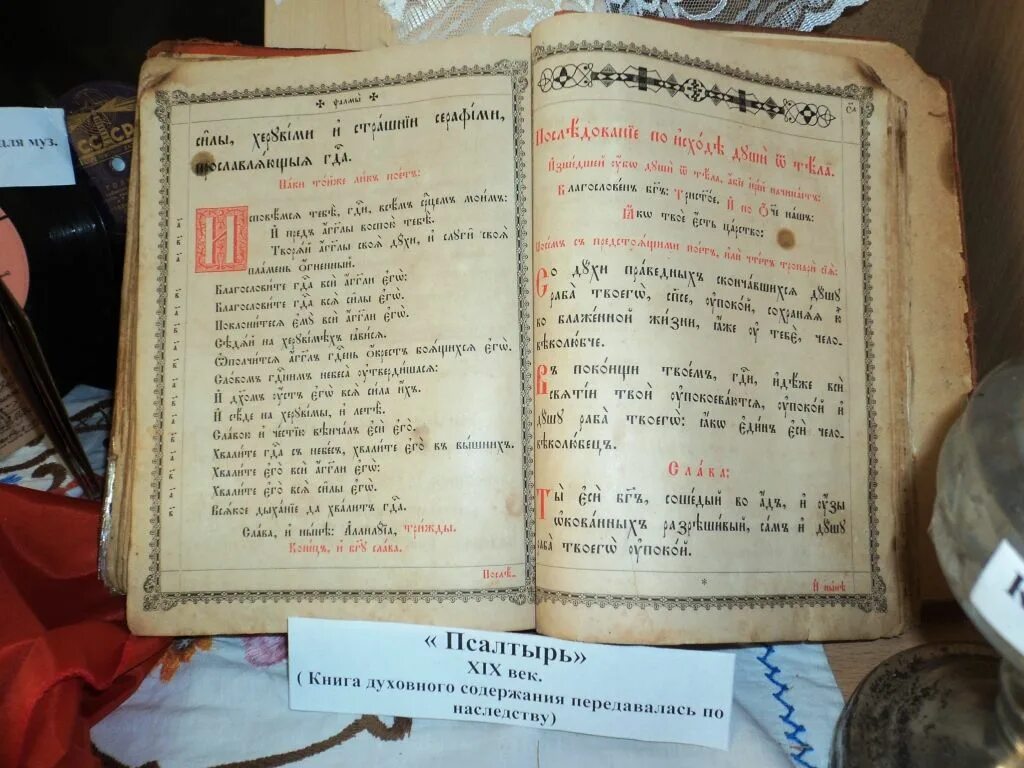 для муз.
СССР
ѱалмы̀
си̑лы, херꙋві́ми и҆ стра́шнїи серафі́ми,
прославлѧ́ющыѧ гд҇а.
Па́ки то́йже ли́къ пое́тъ:
И҆сповѣ́мсѧ тебѣ̀, гд҇и, всѣ́мъ срⷣцемъ мои́мъ:
И҆ пред̾ а҆́гг҃лы воспою̀ тебѣ̀.
Творѧ́й а҆́гг҃лы своѧ̑ дꙋ́хи, и҆ слꙋги̑ своѧ̑
пла́мень ѻ҆́гненный.
Благослови́те гд҇а всѝ а҆́гг҃ли є҆гѡ̀:
Благослови́те гд҇а всѧ̑ си̑лы є҆гѡ̀.
Поклони́тесѧ є҆мꙋ̀ всѝ а҆́гг҃ли є҆гѡ̀.
Сѣдѧ́й на херꙋві́мѣхъ ꙗ҆ви́сѧ.
Ѡ҆полчи́тсѧ а҆́гг҃лъ гд҇ень ѻ҆́крестъ боѧ́щихсѧ є҆гѡ̀.
Сло́вомъ гд҇нимъ небеса̀ ᲂу҆тверди́шасѧ:
И҆ дх҃омъ ᲂу҆́стъ є҆гѡ̀ всѧ̀ си́ла и҆́хъ.
И҆ сѣ́де на херꙋві́мы, и҆ летѣ̀.
Сла́вою и҆ че́стїю вѣнча́лъ є҆сѝ є҆го̀.
Хвали́те гд҇а съ небе́съ, хвали́те є҆го̀ въ вы́шнихъ.
Хвали́те є҆го̀ всѝ а҆́гг҃ли є҆гѡ̀:
Хвали́те є҆го̀ всѧ̑ си̑лы є҆гѡ̀.
Всѧ́кое дыха́нїе да хва́литъ гд҇а.
Сла́ва, и҆ ны́нѣ: А҆ллилꙋ́їа, три́жды.
Коне́цъ, и҆ бг҃ꙋ сла́ва.
Послѣ̑-
Послѣ́дованїе по и҆схо́дѣ дꙋшѝ ѿ тѣ́ла.
И҆зше́дшей ᲂу҆́бѡ дꙋшѝ ѿ тѣ́ла, а҆́бїе і҆ере́й начина́етъ:
Благослове́нъ бг҃ъ: Трист҃о́е. И҆ по Ѻ҆́ч҃е на́шъ:
Ꙗ҆́кѡ твоѐ є҆́сть ца́рство:
Посе́мъ съ предстоѧ́щими пое́тъ, и҆лѝ чте́тъ тропарѝ сїѧ̑:
Со дꙋ́хи првⷣныхъ сконча́вшихсѧ дꙋ́шꙋ
раба̀ твоегѡ̀, сп҃се, ᲂу҆поко́й, сохранѧ́ѧ ю҆̀
во блаже́нной жи́зни, ꙗ҆́же ᲂу҆ тебє̀, чело-
вѣколю́бче.
Въ поко́ищи твое́мъ, гд҇и, и҆дѣ́же всѝ
свѧті́и твоѝ ᲂу҆покоева́ютсѧ, ᲂу҆поко́й и҆
дꙋ́шꙋ раба̀ твоегѡ̀: ꙗ҆́кѡ є҆ди́нъ є҆сѝ чело-
вѣколю́бецъ.
Сла́ва:
Ты̀ є҆сѝ бг҃ъ, соше́дый во а҆́дъ, и҆ ᲂу҆́зы
ѡ҆кова́нныхъ разрѣши́вый, са́мъ и҆ дꙋ́шꙋ
раба̀ твоегѡ̀ ᲂу҆поко́й.
И҆ ны́нѣ
« Псалтырь»
XIX век.
( Книга духовного содержания передавалась по
наследству)